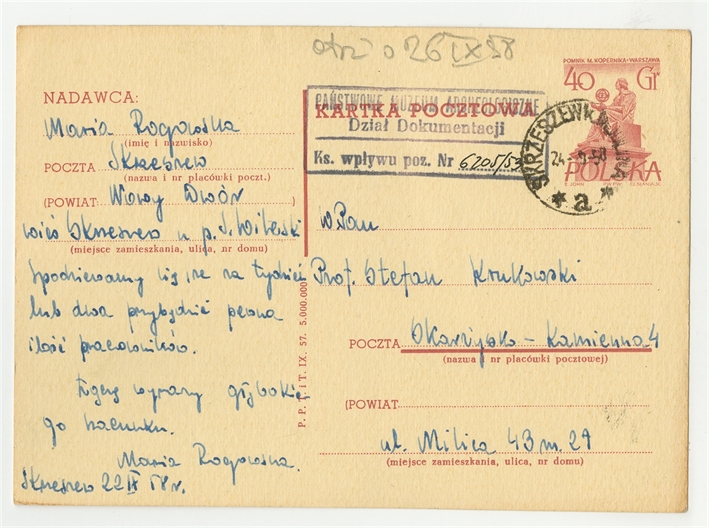 otrz. 26 IX 58
POMNIK M. KOPERNIKA-WARSZAWA
40 Gr
POLSKA
24.-9-58
* a *
KARTKA POCZTOWA
PAŃSTWOWE MUZEUM ARCHEOLOGICZNE
Dział Dokumentacji
Ks. wpływu poz. Nr 6205/58
NADAWCA:
Maria Rogowska
(imię i nazwisko)
POCZTA Skrzeszew
(nazwa i nr placówki poczt.)
(POWIAT) Nowy Dwór
wieś Skrzeszew u p. J. Witerski
(miejsce zamieszkania, ulica, nr domu)
Spodziewamy się, że za tydzień
lub dwa przybędzie pewna
ilość pracowników.
Łączę wyrazy głębokie
go szacunku.
Maria Rogowska.
Skrzeszew 22 IX 58 r.
P. P. T. i T. IX. 57. 5.000.000
W Pan
Prof. Stefan Krukowski
POCZTA Skarżysko-Kamienna 4
(nazwa i nr placówki pocztowej)
(POWIAT
ul. Milica 43 m. 29
(miejsce zamieszkania, ulica, nr domu)